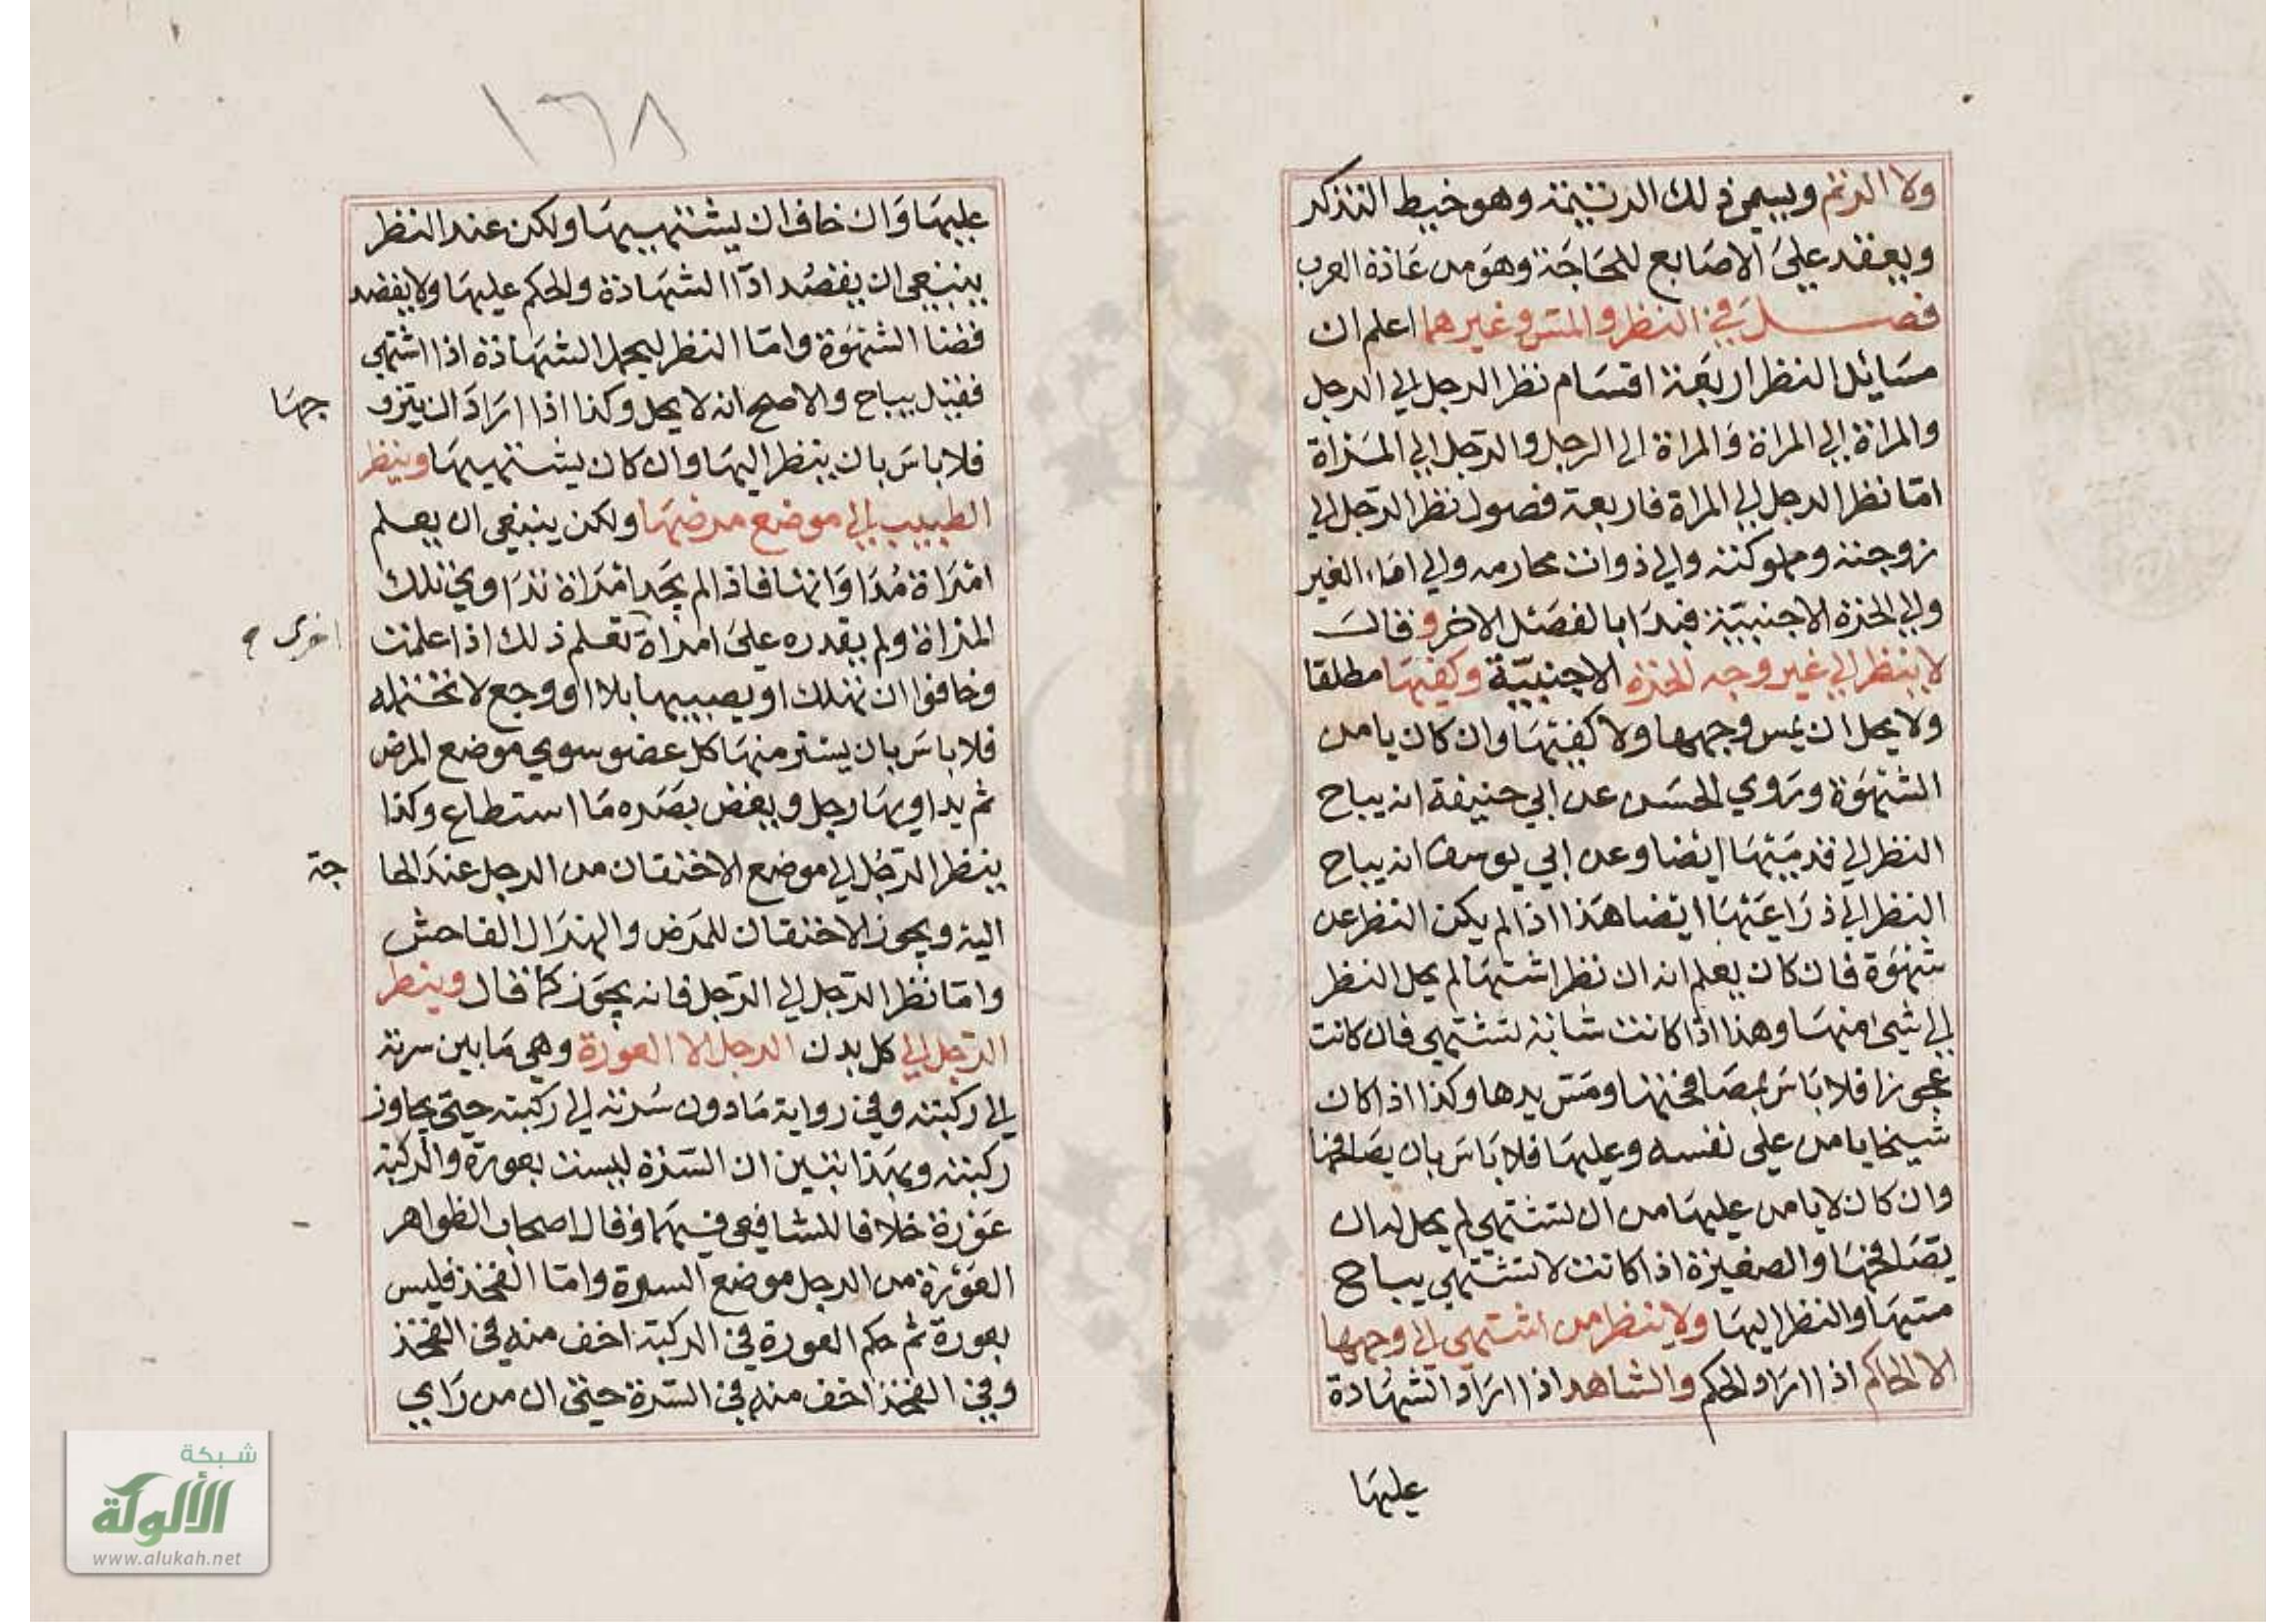 ولا الرتم ويسمى ذلك الرتيمة وهو خيط التذكر
ويعقد على الاصابع للحاجة وهو من عادة العرب
فصل في النظر والمس وغيرهما اعلم ان
مسائل النظر اربعة اقسام نظر الرجل الي الرجل
والمراة الي المراة والمراة الى الرجل والرجل الي المراة
اما نظر الرجل الي المراة فاربعة فصول نظر الرجل الي
زوجته ومملوكته والي ذوات محارمه والي اماء الغير
والي الحرة الاجنبية فبدا بالفصل الاخر وقال
لا ينظر الي غير وجه الحرة الاجنبية وكفيها مطلقا
ولا يحل ان يمس وجهها ولا كفيها وان كان يامن
الشهوة وروي الحسن عن ابي حنيفة انه يباح
النظر الي قدميها ايضا وعن ابي يوسف انه يباح
النظر الي ذراعيها ايضا هذا اذا لم يكن النظر عن
شهوة فان كان يعلم انه ان نظر اشتها لم يحل النظر
الي شيء منها وهذا اذا كانت شابة تشتهي فان كانت
عجوزا فلا باس بمصافحتها ومس يدها وكذا اذا كان
شيخا يامن على نفسه وعليها فلا باس بان يصافحها
وان كان لا يامن عليها من ان تشتهي لم يحل له ان
يصافحها والصغيرة اذا كانت لا تشتهي يباح
مسها والنظر اليها ولا ينظر من اشتهي الي وجهها
الا الحاكم اذا اراد الحكم والشاهد اذا اراد الشهادة
عليها
١٦٨
عليها وان خاف ان يشتهيها ولكن عند النظر
ينبغي ان يقصد ادا الشهادة والحكم عليها ولا يقصد
قضا الشهوة واما النظر ليحمل الشهادة اذا اشتهي
فقيل يباح والاصح انه لا يحل وكذا اذا اراد ان يتزو
جها
فلا باس بان ينظر اليها وان كان يشتهيها وينظر
الطبيب الي موضع مرضها ولكن ينبغي ان يعلم
امراة مداواتها فاذا لم يجد امراة تداوي تلك
المراة ولم يقدره على امراة تعلم ذلك اذا علمت
اخرى
وخافوا ان تهلك او يصيبها بلاا او وجع لا تحتمله
فلا باس بان يستر منها كل عضو سوي موضع المرض
ثم يداويها رجل ويغض بصره ما استطاع وكذا
ينظر الرجل الي موضع الاحتقان من الرجل عند الحا
جة
اليه ويجوز الاحتقان للمرض والهزال الفاحش
واما نظر الرجل الي الرجل فانه يجوز كما قال وينظر
الرجل الي كل بدن الرجل الا العورة وهي ما بين سرته
الي ركبته وفي رواية ما دون سرته الي ركبته حتي يجاوز
ركبته وبهذا تبين ان السرة ليست بعورة والركبة
عورة خلافا للشافعي فيهما وقال اصحاب الظواهر
العورة من الرجل موضع السرة واما الفخذ فليس
بعورة ثم حكم العورة في الركبة اخف منه في الفخذ
وفي الفخذ اخف منه في السرة حتي ان من راي
شبكة
الألوكة
www.alukah.net